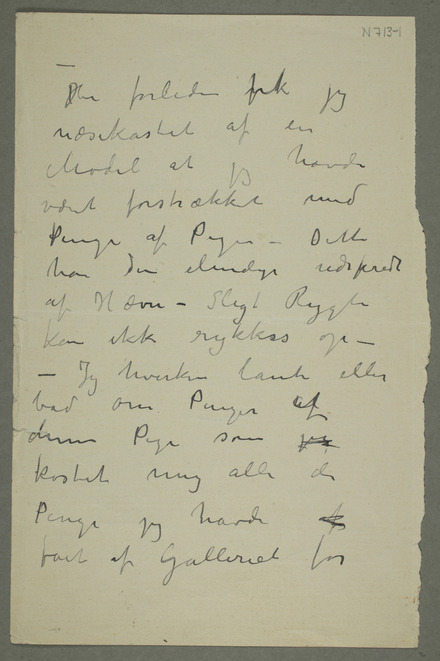 N 713-1
– Her forleden fik jeg
næsekastet af en
Model at jeg havde
været forstrækket med
Penge af Piger – Dette
har den elendige udspredt
af Hævn – Sligt Rygte
kan ikke rykkes op –
– Jeg hverken laante eller
bad om Penger af
denne Pige som jeg
kostet mig alle de
Penge jeg havde
faaet af Galleriet for